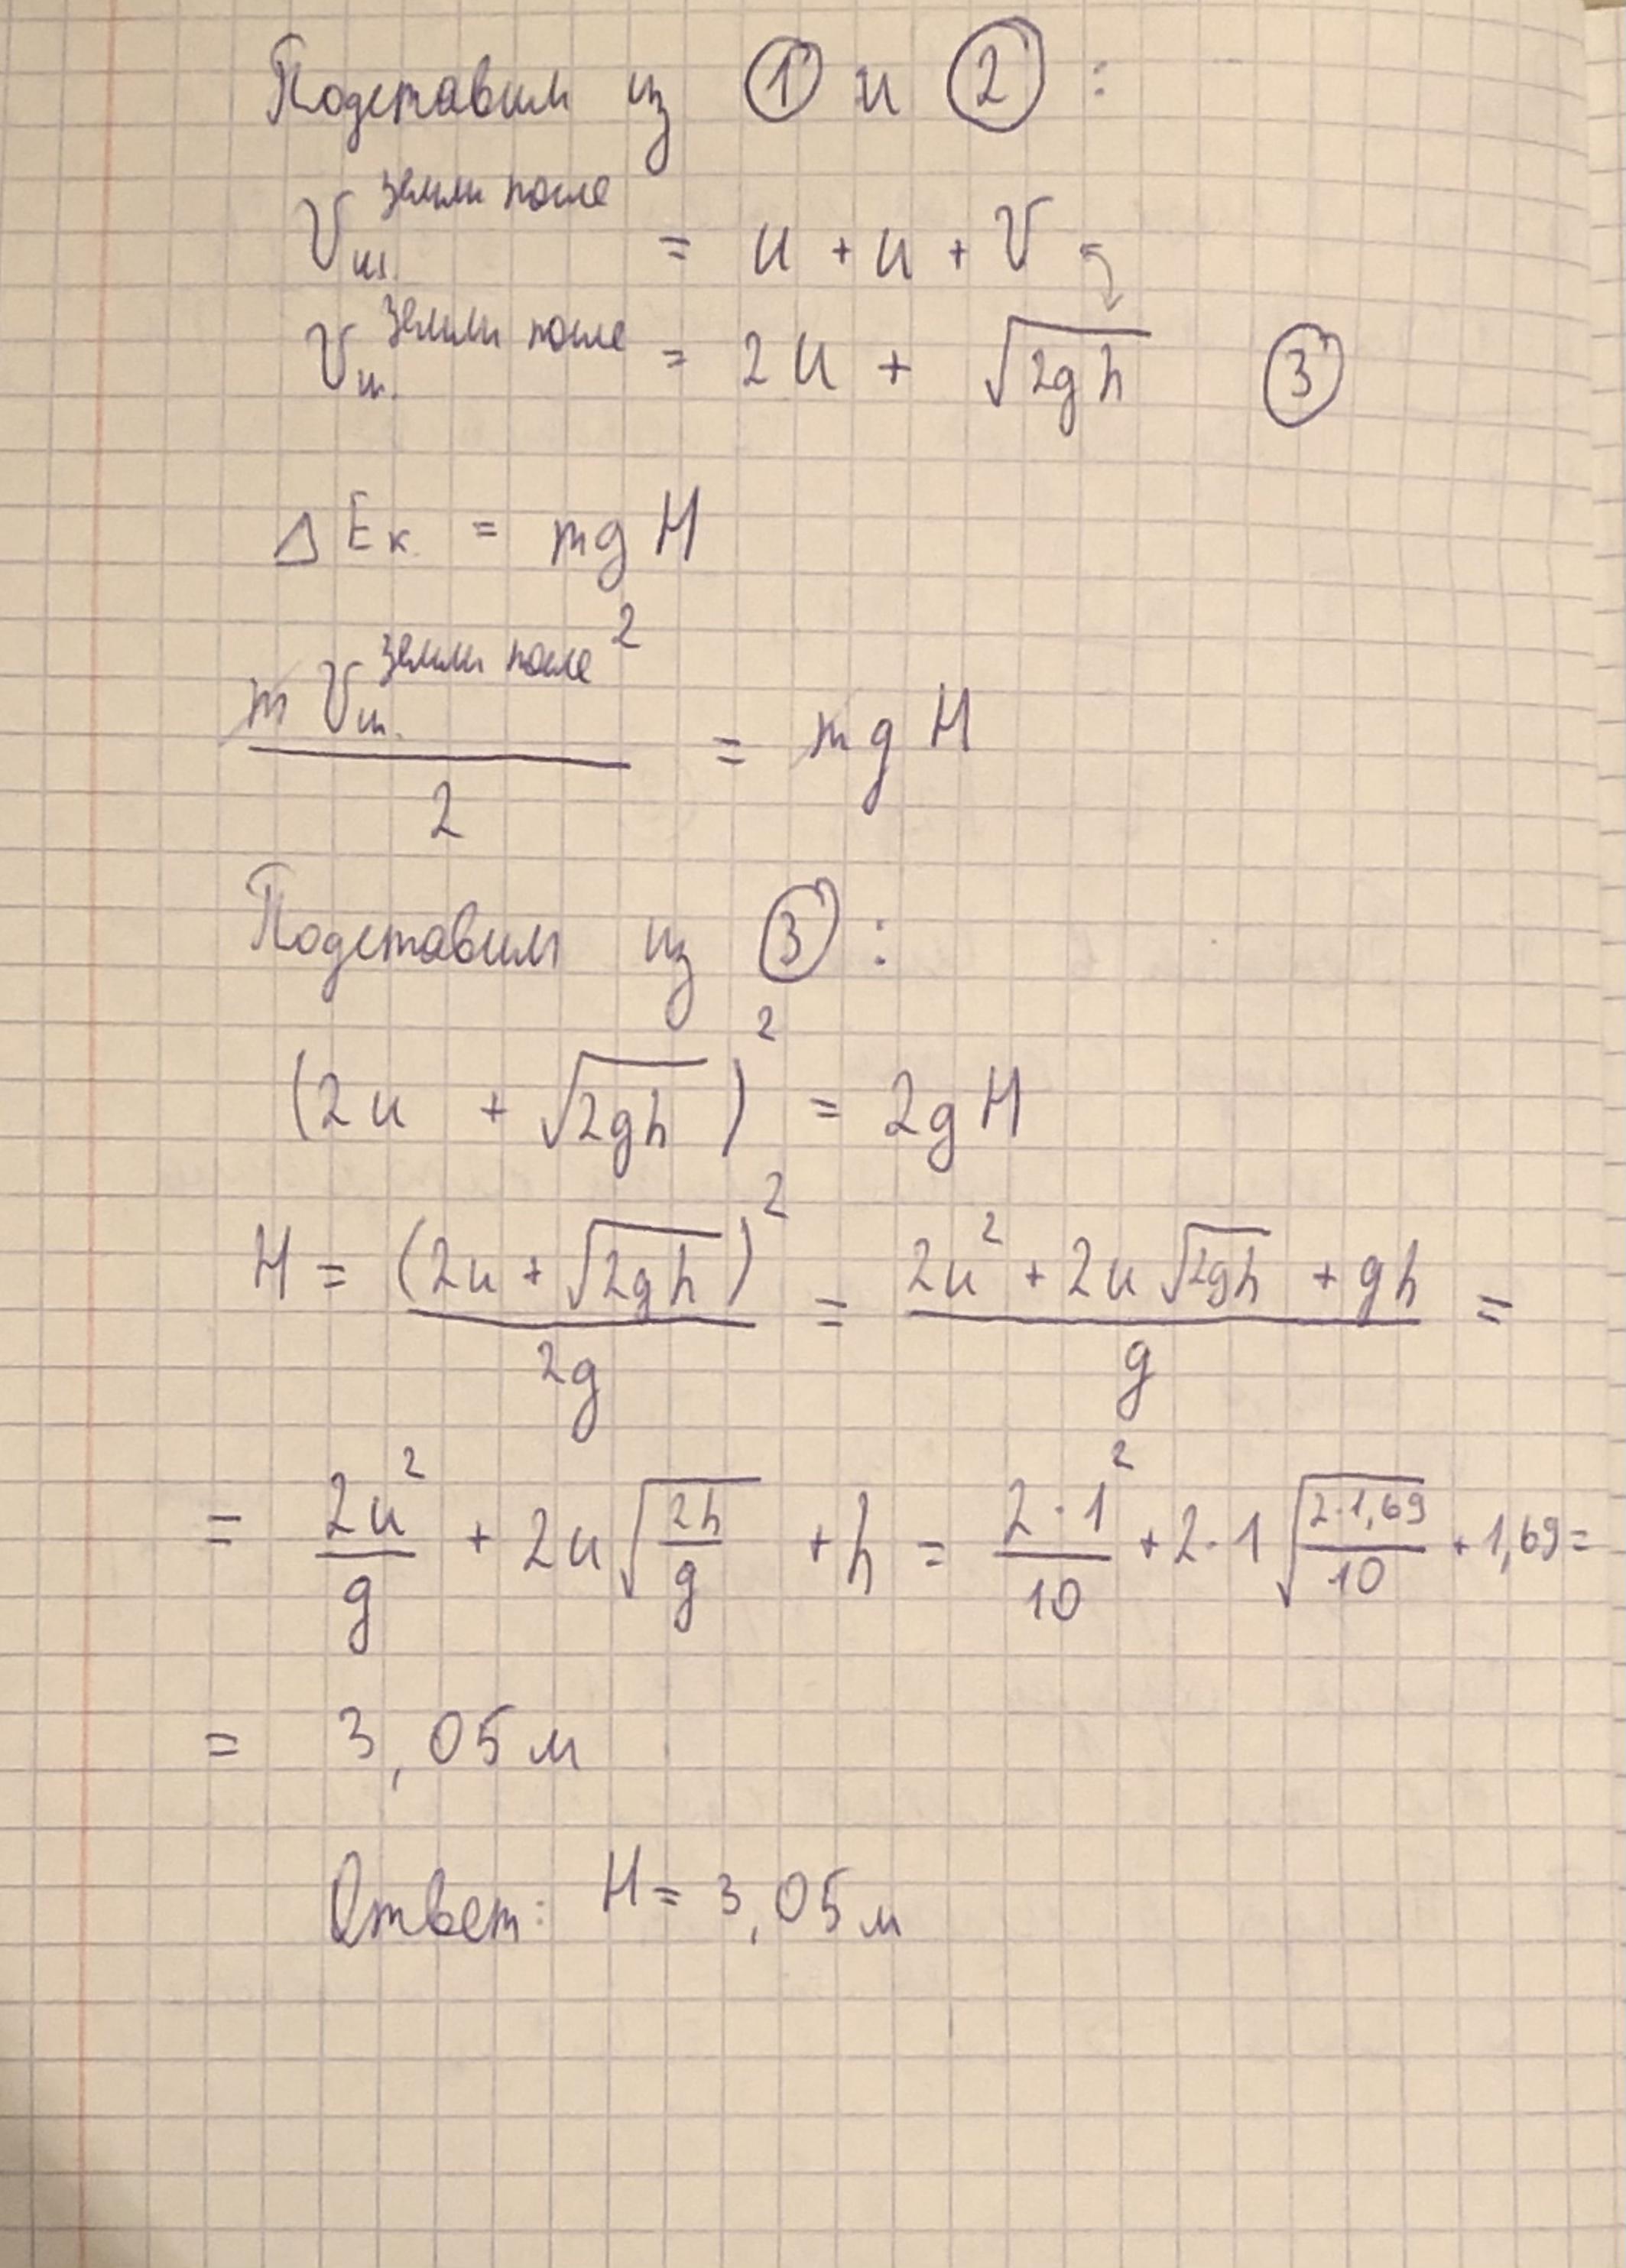 Подставим из ① и ② :
V_ш.^земли после = u + u + V
V_ш.^земли после = 2u + √(2gh) ③
ΔEк = mgH
m V_ш.^земли после ² / 2 = mgH
Подставим из ③ :
(2u + √(2gh))² = 2gH
H = (2u + √(2gh))² / 2g = (2u² + 2u√(2gh) + gh) / g =
= 2u²/g + 2u√(2h/g) + h = 2·1²/10 + 2·1√(2·1,69/10) + 1,69 =
= 3,05 м
Ответ: H = 3,05 м